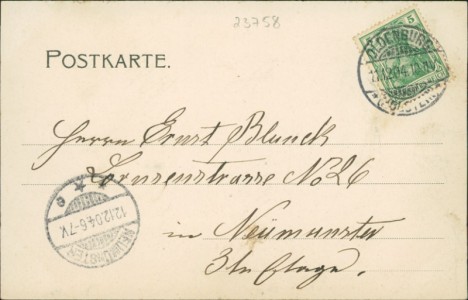 23758
POSTKARTE.
5
OLDENBURG
11.12.04.
Herrn Ernst Blunck
Lornsenstrasse No 26
in Neümünster
3te Etage.
12.12.04.6-7V.
NEUMÜNSTER